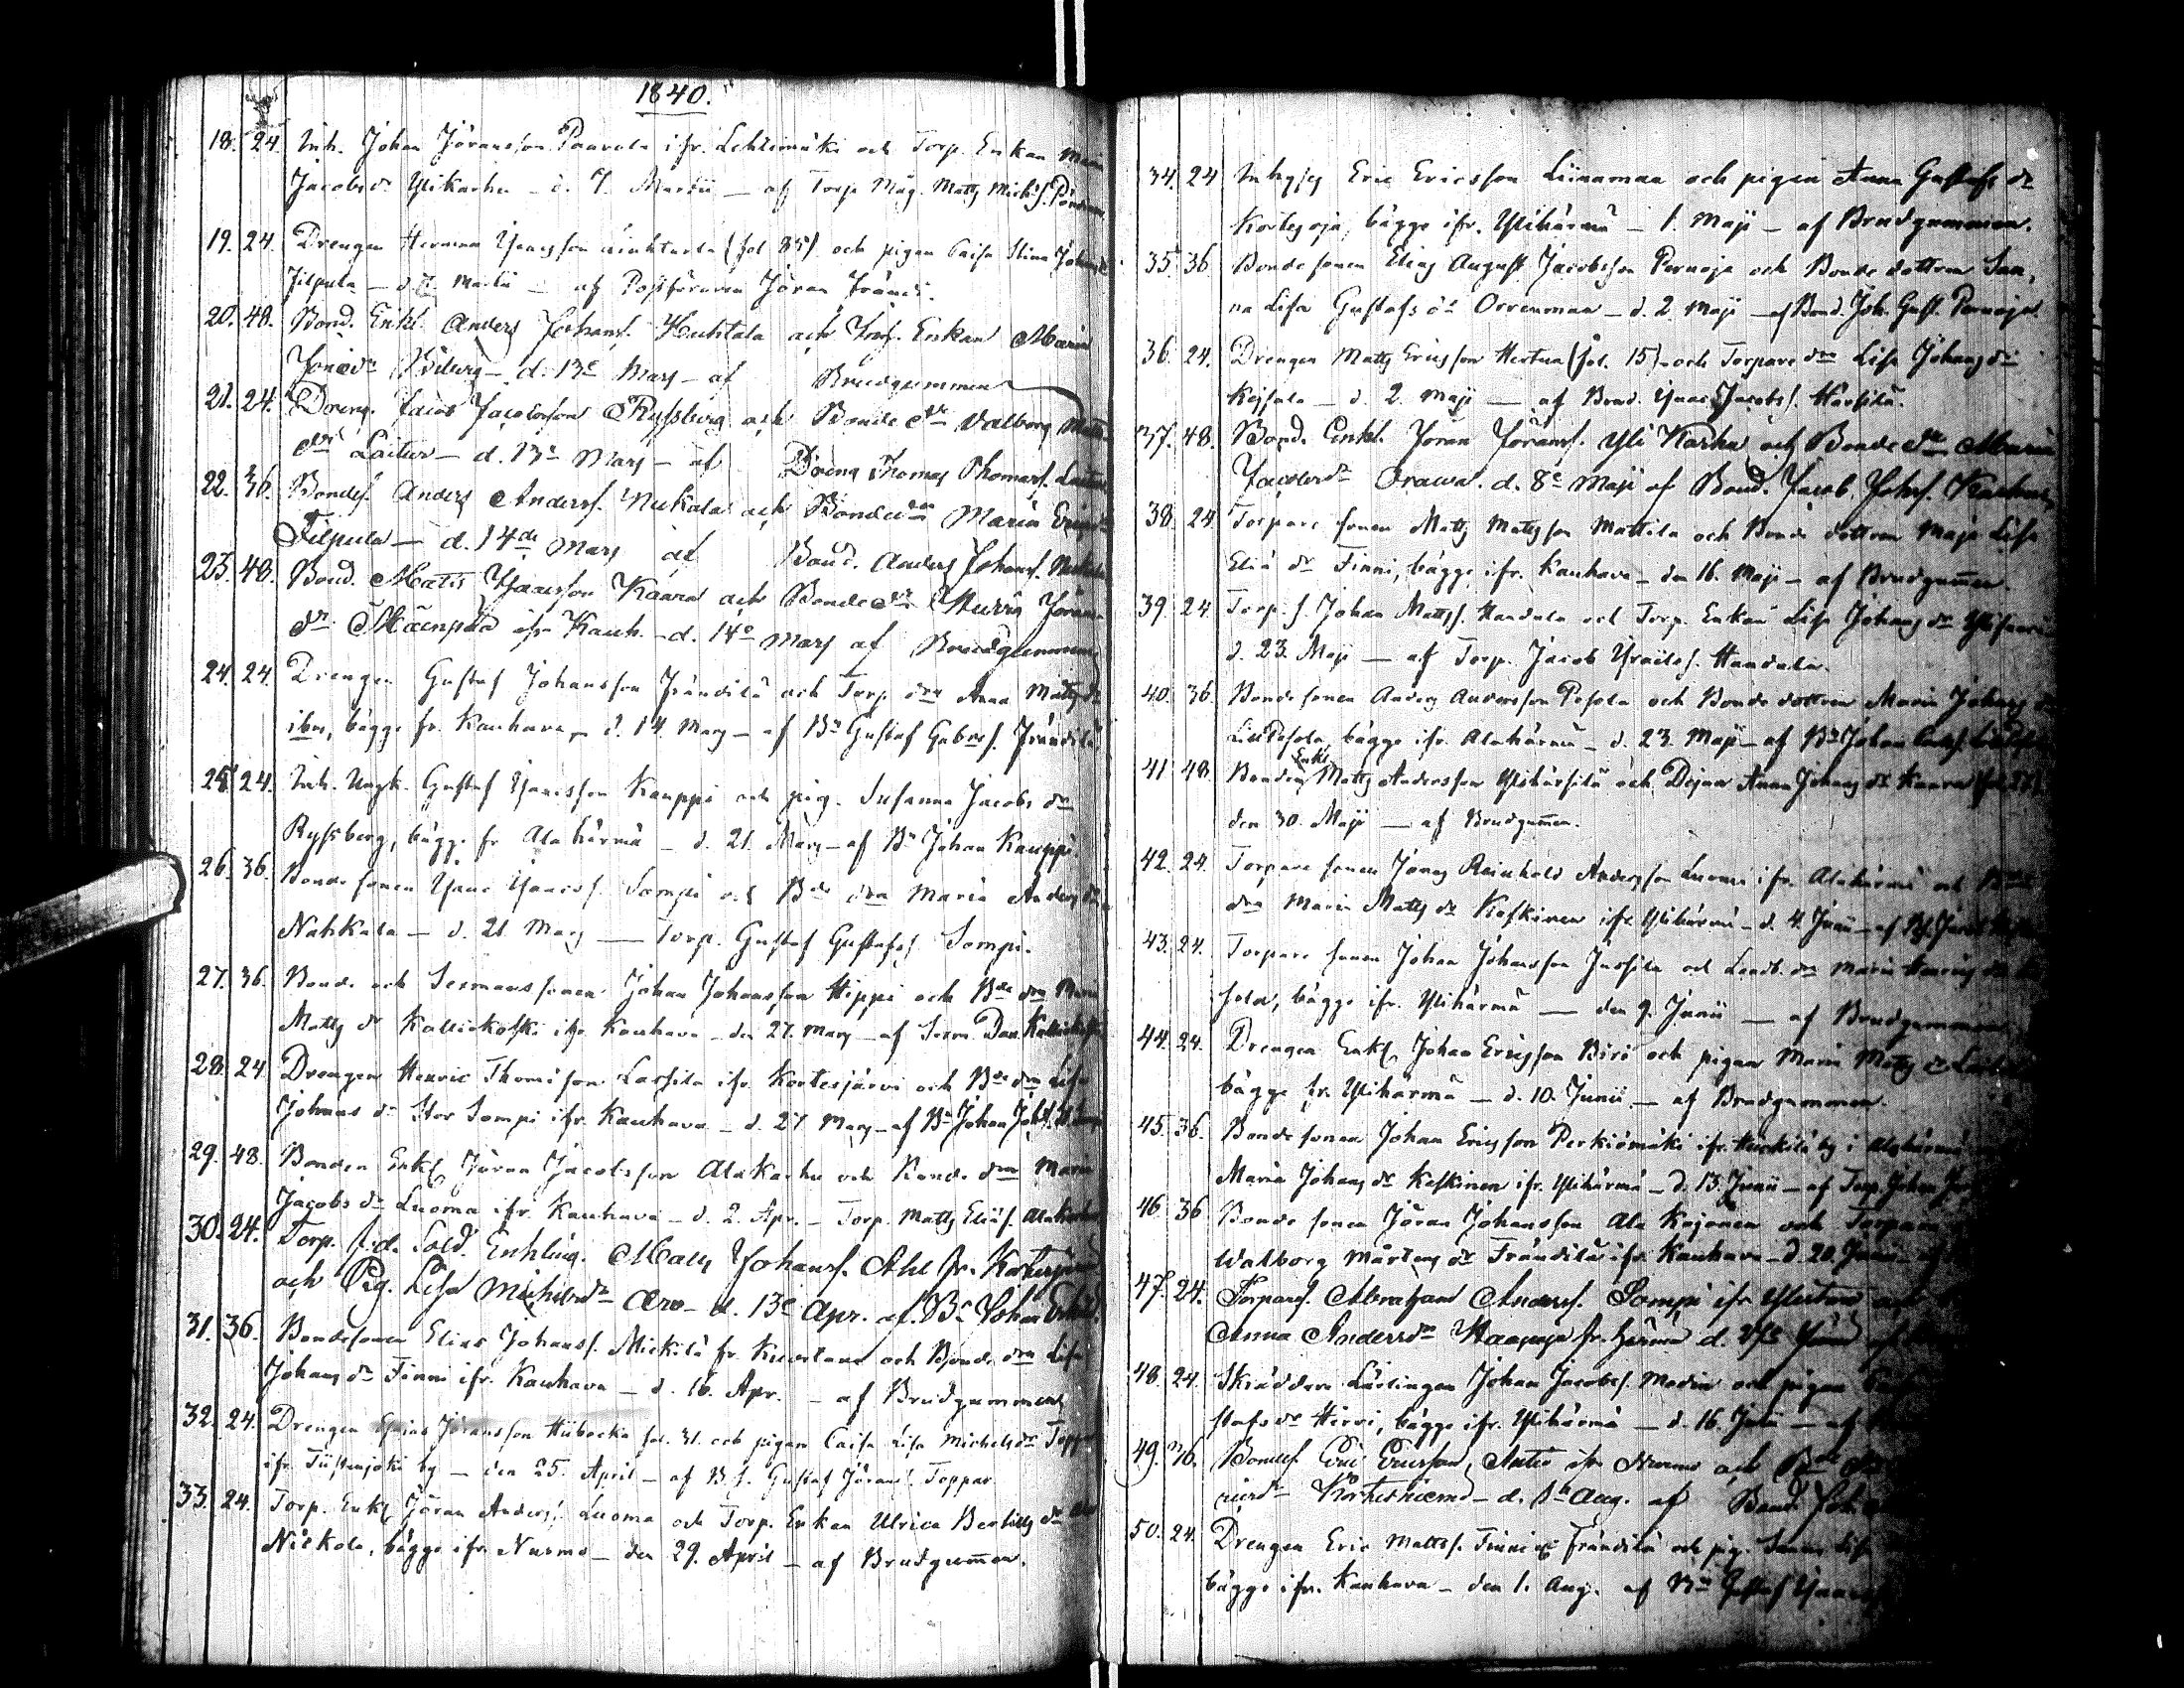 1840.
18. 24. Inh. Johan Jöransson Paavola ifr. Lehtimäki och Torp. Enkan Maria
Jacobs dr Ylikarhu - d. 7. Martii - af Torp. Måg. Matts Mich:s.
19. 24. Drengen Herman Isacsson (fol 85) och pigan Caisa Stina Johans
Filpula - d. 7. Martii - af Postföraren Jöran Frändi.
20. 48. Bond. Enkl. Anders Johanss. Huhtala och Enkan Maria
Wiberg - d. 13e Mars - af Brudgummen
21. 24. Dreng. Jacob Jacobsson Ryssberg och Bonde dr Valborg Matts
dr Laitur - d. 13e Mars - af Dreng Thomas Thomass.
22. 36. Bondes. Anders Anderss. Niekala och Bonde dr Maria Erics
Filpula - d. 14de Mars af Bond. Anders Johanss.
23. 48. Bond. Matts Isacsson Kaara och Bonde dr Maria Jörans
dr Mäenpää ifr Kauh. - d. 14e Mars af Brudgummen
24. 24. Drengen Gustaf Johansson Frändilä och Torp. dra Anna Matts dr
ibm, bägge fr. Kauhava, - d. 14. Mars - af Bn Gustaf Gabr:s. Frändilä
25. 24. Inh. Ungk. Gustaf Isacsson Kauppi och pig. Susanna Jacobs dr
Ryssberg, bägge fr. Alahärmä - d. 21. Mars - af Bn Johan Kauppi.
26. 36. Bonde sonen Isac Isacss. Sompi och Bde dra Maria Anders dr
Nahkala - d. 21 Mars - Torp. Gustaf Gustafss. Sompi.
27. 36. Bonde och Sexmans sonen Johan Johansson Hippi och Bde dra Maria
Matts dr Kalliokoski ifr Kauhava - den 27. Mars - af Sexm. Dan. Kalliokoski
28. 24 Drengen Henric Thomæson Lassila ifr. Kortesjärvi och Bde dra Lisa
Johans dr Stor Sompi ifr. Kauhava - d. 27 Mars - af Bn Johan Johs.
29. 48. Bonden Enkl. Jöran Jacobsson Alakarhu och Bonde dra Maria
Jacobs dr Luoma ifr. Kauhava - d. 2. Apr. - Torp. Matts Eliæs. Alakarhu
30. 24. Torp. f.d. Sold. Enkling. Matts Johanss. Ahl fr. Kortesjärvi
och Pig. Lisa Michelsdr Aro - d. 13e Apr. af Bn Johan
31. 36. Bondesonen Elias Johanss. Mickilä fr. Kuortane och Bonde dra Lisa
Johans dr Finni ifr. Kauhava - d. 16. Apr. - af Brudgummen
32. 24. Drengen Jöransson Hiibacka fol. 31. och pigan Caisa Lisa Michelsdr Toppar
ifr Tiistenjoki by - den 25. April - af B.s. Gustaf Jörans. Toppar
33. 24. Torp. Enkl. Jöran Anderss. Luoma och Torp. Enkan Ulrica Bertills dr
Niskala, bägge ifr Nurmo - den 29. April - af Brudgummen.
34. 24 Inhyses Eric Ericsson Liinamaa och pigan Anna Gustafs dr
Kortesoja, bägge ifr. Ylihärmä - 1. Maji - af Brudgummen.
35. 36 Bondesonen Elias August Jacobsson Pernaja och Bonde dottren San,
na Lisa Gustafs dr Orrenmaa - d. 2. Maji - af Bond. Joh. Gust. Pernaja.
36. 24. Drengen Matts Ericsson Hertua (fol. 15) och Torpare dra Lisa Johans dr
Keisala - d. 2. Maji - af Bond. Isac Jacobss. Härsilä.
37. 48. Bond. Enkl. Jöran Jöranss. Yli Karhu och Bonde dr Maria
Jacobsdr Orawa. d. 8e Maji af Bond. Jacob Johss. Karhu
38. 24 Torpare sonen Matts Mattsson Mattila och Bonde dottren Maja Lisa
Eliæ dr Finni, bägge ifr. Kauhava - den 16. Maji - af Brudgummen.
39. 24 Torp. s. Johan Mattss. Handula och Torp. Enkan Lisa Johans dr
d. 23. Maji - af Torp. Jacob Israelss. Handula.
40. 36 Bonde sonen Anders Andersson Pesola och Bonde dottren Maria Johans dr
bägge ifr. Alahärmä - d. 23. Maji - af Bn Johan
41 48. Bonden Enkl. Matts Andersson Ylihärsilä och Dejan Anna Johans dr Kaara
den 30. Maji - af Brudgummen.
42. 24. Torpare sonen Jonas Reinhold Andersson Luoma ifr. Alahärmä och
dra Maria Matts dr Koskinen ifr. Ylihärmä - d. 4. Junii - af
43. 24. Torpare sonen Johan Johansson Jussila och Landb. dr Maria Henrics dr
sola, bägge ifr. Ylihärmä - den 9. Junii - af Brudgummen
44. 24. Drengen Enkl. Johan Ericsson Biri och pigan Maria Matts dr
bägge fr. Ylihärmä - d. 10. Junii - af Brudgummen.
45. 36. Bonde sonen Johan Ericsson Perkiömäki ifr. Härkilä by i Alahärmä
Maria Johans dr Koskinen ifr. Ylihärmä - d. 13. Junii - af Torp. Johan
46 36 Bonde sonen Jöran Johansson Ala Kojonen och Torpare
Walborg Mårtens dr Frändilä ifr. Kauhava - d. 20. Junii - af
47. 24. Torpares. Abraham Anderss. Sompi ifr Ylistaro
Anna Andersdr Haapoja fr. Härmä d. 27e Junii af
48. 24. Skräddare Lärlingen Johan Jacobss. Modin och pigan
stafs dr Hirvi, bägge ifr. Ylihärmä - d. 16. Julii - af
49. 36. Bondes. Eric Ericsson Antio ifr Nurmo och
Kortesniemi - d. 1e Aug. af Bond. Joh.
50. 24. Drengen Eric Mattss. Finni Frändilä och pig. Sanna Lisa
bägge ifr. Kauhava - den 1. Aug. af Bn Gustaf Isacs